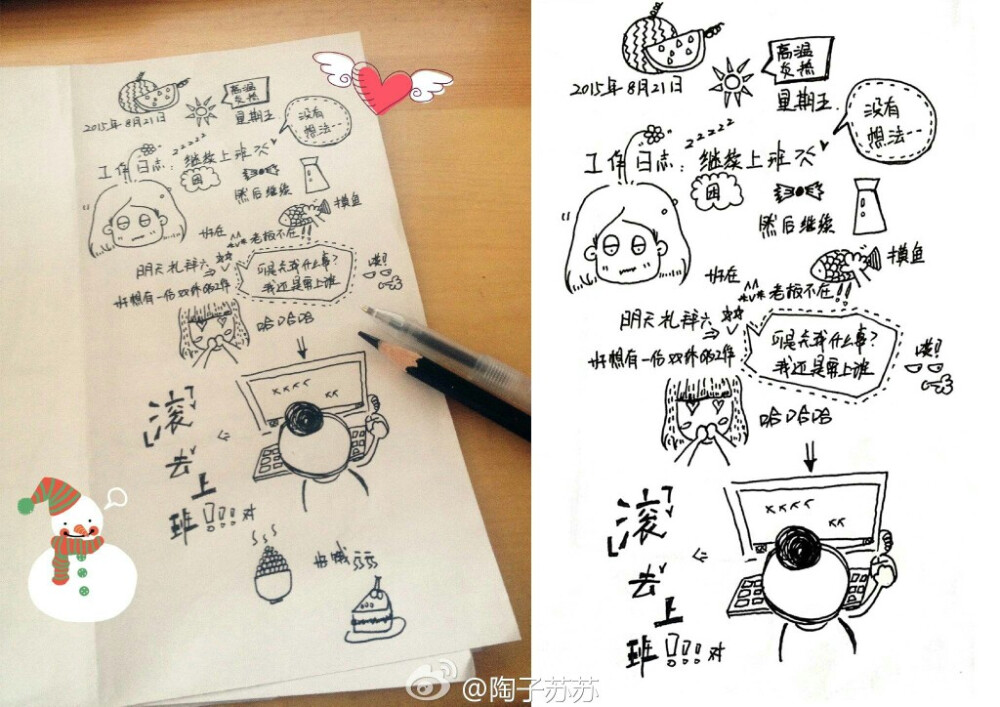 高温
炎热
2015年8月21日
星期五
没有
想法--
zzzzz
工作日志:继续上班
困
然后继续
摸鱼
好在
老板不在!!
明天礼拜六
可是关我什么事?
我还是要上班
哎!
好想有一份双休的工作
哈哈哈
滚
去
上
班!!!
对
好饿
高温
炎热
2015年8月21日
星期五
没有
想法--
zzzzz
工作日志:继续上班
困
然后继续
摸鱼
好在
老板不在!!
明天礼拜六
可是关我什么事?
我还是要上班
哎!
好想有一份双休的工作
哈哈哈
滚
去
上
班!!!
对
@陶子苏苏